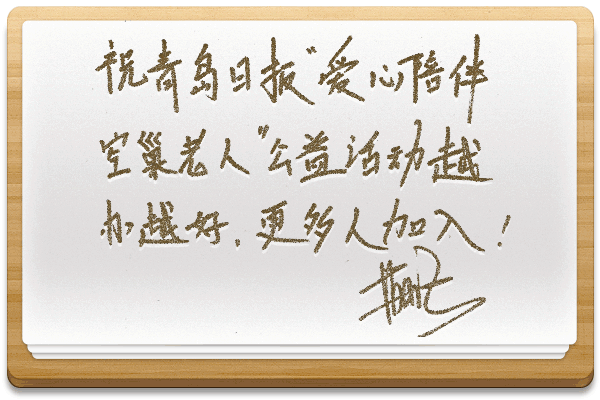 祝青岛日报“爱心陪伴
空巢老人”公益活动越
办越好，更多人加入！